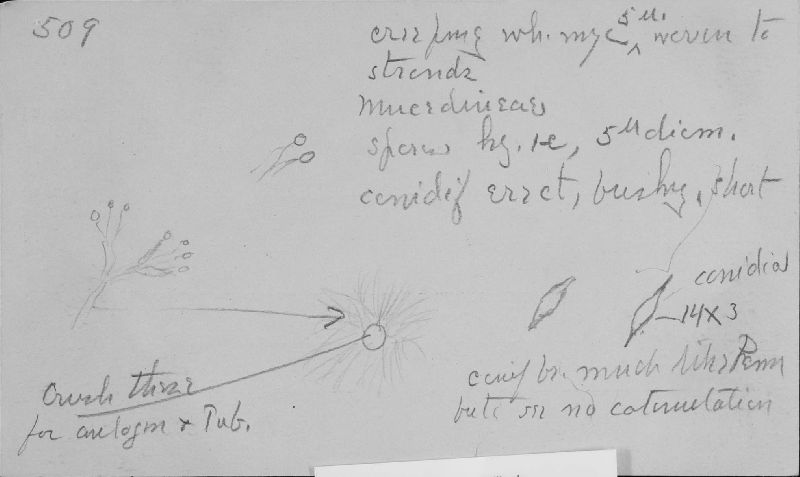 509
creeping wh. myc 5 µ. woven to
strands
Mucedineae
spores hy. 1-c, 5 µ diam.
conidif erect, bushy, short
conidia
14 x 3
conif br. much like Penn
but no catenulation
Crush these
for & Tub.